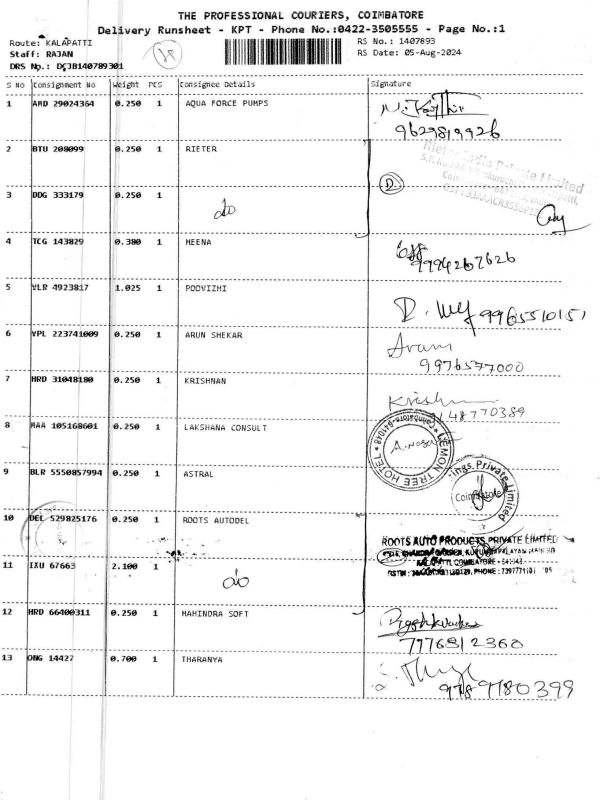 THE PROFESSIONAL COURIERS, COIMBATORE
Delivery Runsheet - KPT - Phone No.:0422-3505555 - Page No.:1
Route: KALAPATTI
Staff: RAJAN
DRS No.: DCJB140789301
RS No.: 1407893
RS Date: 05-Aug-2024
S No Consignment No Weight PCS Consignee Details Signature
1 AMD 29024364 0.250 1 AQUA FORCE PUMPS
9629819926
2 BTU 208099 0.250 1 RIETER
Rieter India Private Limited
3 DDG 333179 0.250 1 do
4 TCG 143829 0.380 1 HEENA
9994267626
5 VLR 4923817 1.025 1 POOVIZHI
9965510151
6 VPL 223741009 0.250 1 ARUN SHEKAR
Arun
9976577000
7 HRD 31048180 0.250 1 KRISHNAN
Krish
48770389
8 MAA 105168601 0.250 1 LAKSHANA CONSULT
LEMON TREE HOTEL
Coimbatore-641048
9 BLR 5550857994 0.250 1 ASTRAL
ings Private Limited
Coimbatore
10 DEL 529825176 0.250 1 ROOTS AUTODEL
ROOTS AUTO PRODUCTS PRIVATE LIMITED
11 IXU 67663 2.100 1 do
12 HRD 66400311 0.250 1 MAHINDRA SOFT
7176812360
13 ONG 14427 0.700 1 THARANYA
9789180399